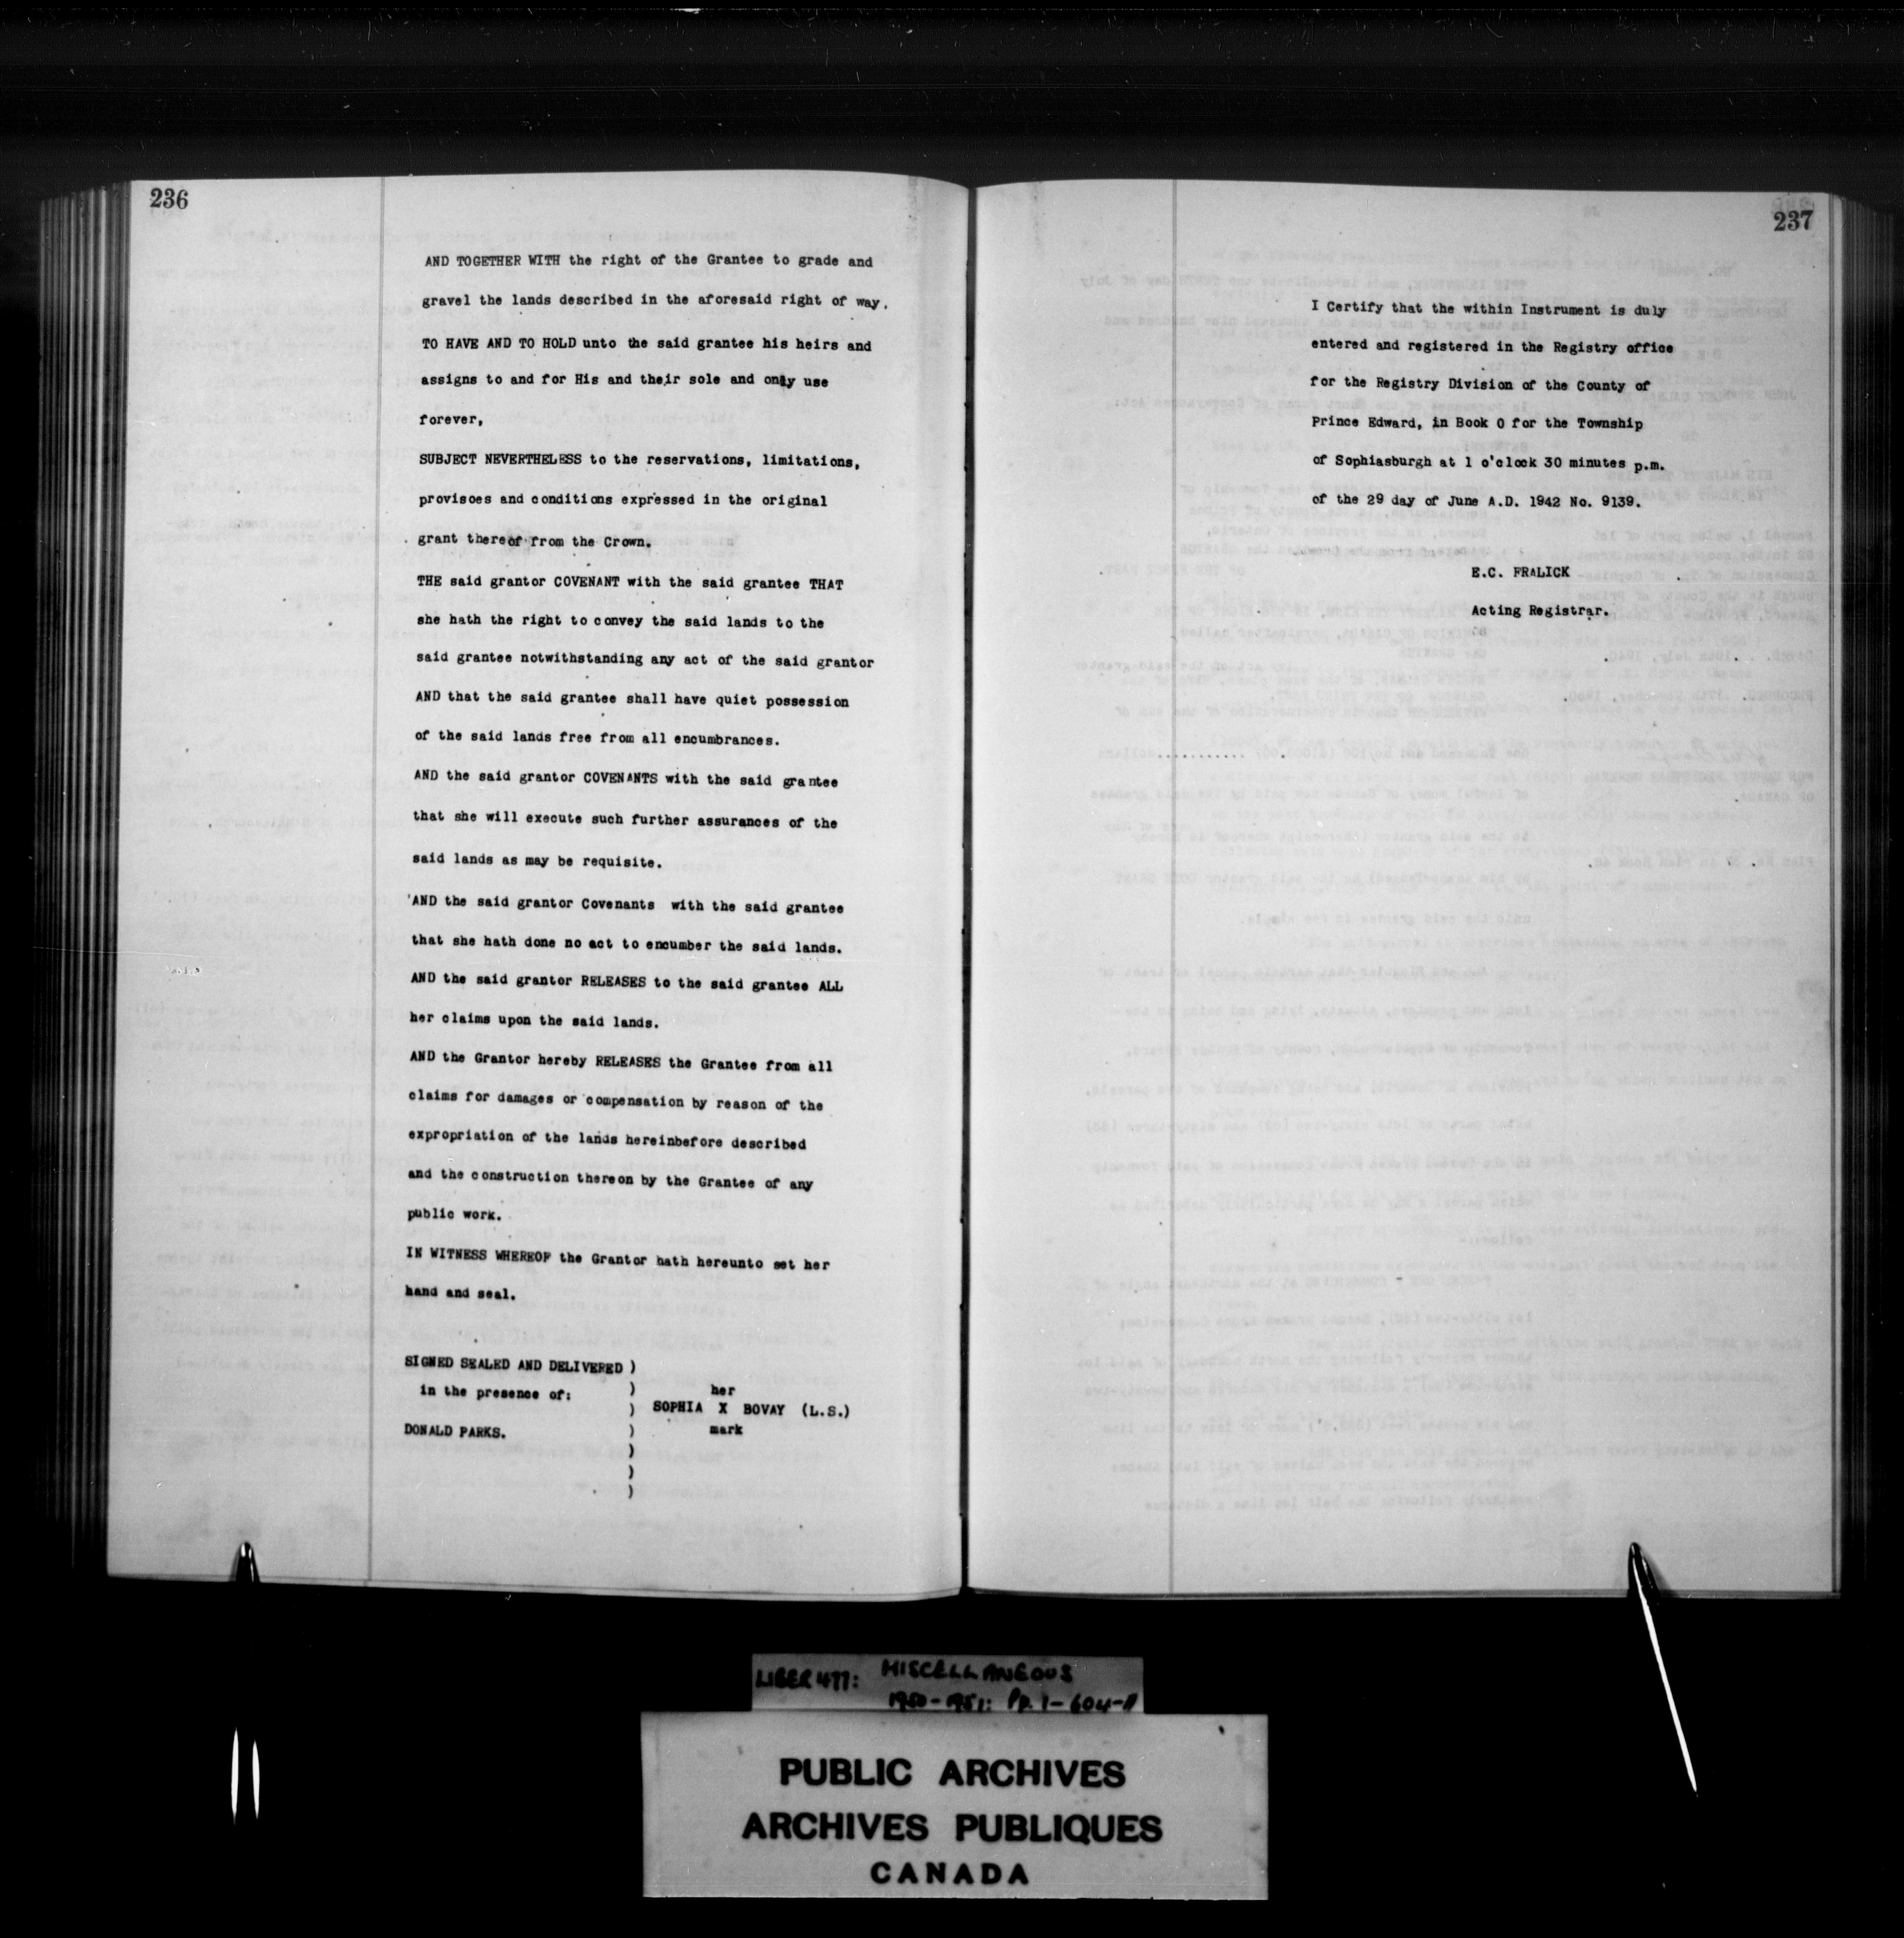 236
AND TOGETHER WITH the right of the Grantee to grade and
gravel the lands described in the aforesaid right of way.
TO HAVE AND TO HOLD unto the said grantee his heirs and
assigns to and for His and their sole and only use
forever,
SUBJECT NEVERTHELESS to the reservations, limitations,
provisoes and conditions expressed in the original
grant thereof from the Crown.
THE said grantor COVENANT with the said grantee THAT
she hath the right to convey the said lands to the
said grantee notwithstanding any act of the said grantor
AND that the said grantee shall have quiet possession
of the said lands free from all encumbrances.
AND the said grantor COVENANTS with the said grantee
that she will execute such further assurances of the
said lands as may be requisite.
AND the said grantor Covenants with the said grantee
that she hath done no act to encumber the said lands.
AND the said grantor RELEASES to the said grantee ALL
her claims upon the said lands.
AND the Grantor hereby RELEASES the Grantee from all
claims for damages or compensation by reason of the
expropriation of the lands hereinbefore described
and the construction thereon by the Grantee of any
public work.
IN WITNESS WHEREOF the Grantor hath hereunto set her
hand and seal.
SIGNED SEALED AND DELIVERED )
in the presence of: ) her
) SOPHIA X BOVAY (L.S.)
DONALD PARKS. ) mark
)
)
)
237
I Certify that the within Instrument is duly
entered and registered in the Registry office
for the Registry Division of the County of
Prince Edward, in Book O for the Township
of Sophiasburgh at 1 o'clock 30 minutes p.m.
of the 29 day of June A.D. 1942 No. 9139.
E.C. FRALICK
Acting Registrar.
LIBER 477: MISCELLANEOUS
1950-1951: Pp. 1-604-A
PUBLIC ARCHIVES
ARCHIVES PUBLIQUES
CANADA